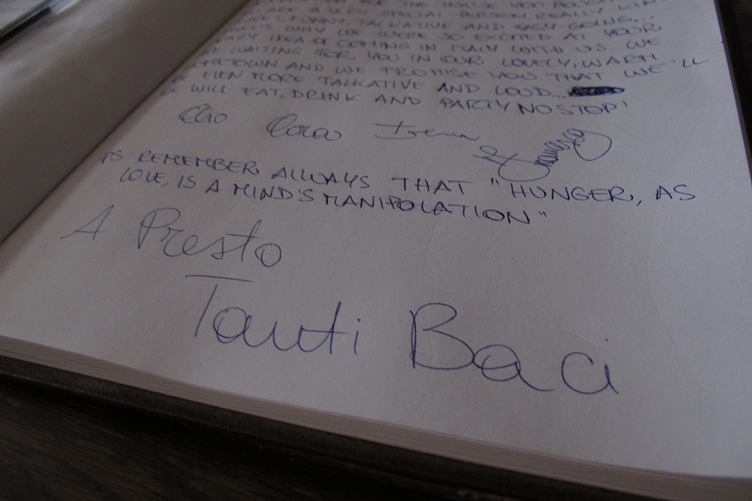 ARE A VERY SPECIAL PERSON, REALLY KIN
FUNNY, TALKATIVE AND EASY GOING...
THAT'S WHY WE WERE SO EXCITED AT YOUR
IDEA OF COMING IN ITALY WITH US. WE
WAITING FOR YOU IN OUR LOVELY, WARM
HOMETOWN AND WE PROMISE YOU THAT WE'LL
EVEN MORE TALKATIVE AND LOUD...
WE WILL EAT, DRINK AND PARTY NO STOP!
Clio Cora Irena
PS: REMEMBER ALLWAYS THAT "HUNGER, AS
LOVE, IS A MIND'S MANIPOLATION"
A Presto
Tanti Baci